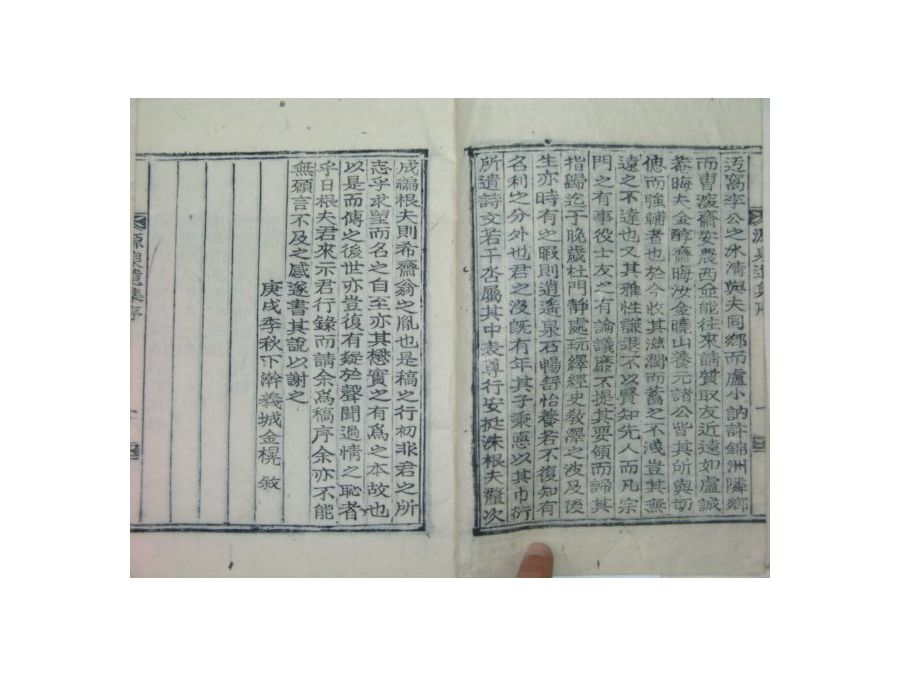 迃窩李公之氷淸與夫同鄕而盧小訥許錦洲隣鄕
而曺深齋安農西並能往來請質取友近遠如盧誠
菴晦夫金醇齋晦汝金曉山養元諸公皆其所與切
偲而強輔者也於今收其滋潤而蓄之不洩豈其無
遠之不達也又其雅性謙退不以賢知先人而凡宗
門之有事役士友之有論議靡不提其要領而諦其
指歸迄于晚歲杜門靜處玩繹經史敎澤之波及後
生亦時有之暇則逍遥泉石暢舒怡養若不復知有
名利之分外也君之沒旣有年其子秉應以其巾衍
所遺詩文若干呇屬其中表尊行安挺洙根夫釐次
成編根夫則希齋翁之胤也是稿之行初非君之所
志乎求望而名之自至亦其懋實之有爲之本故也
以是而傳之後世亦豈復有疑於聲聞過情之恥者
乎日根夫君來示君行錄而請余爲稿序余亦不能
無願言不及之感遂書其說以謝之
庚戌季秋下澣義城金榥敘
源泉遺集序
一